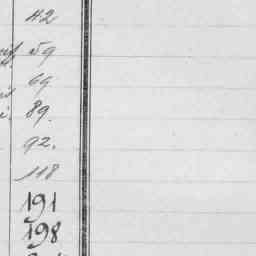 42
59
69
89.
92.
118
191
198